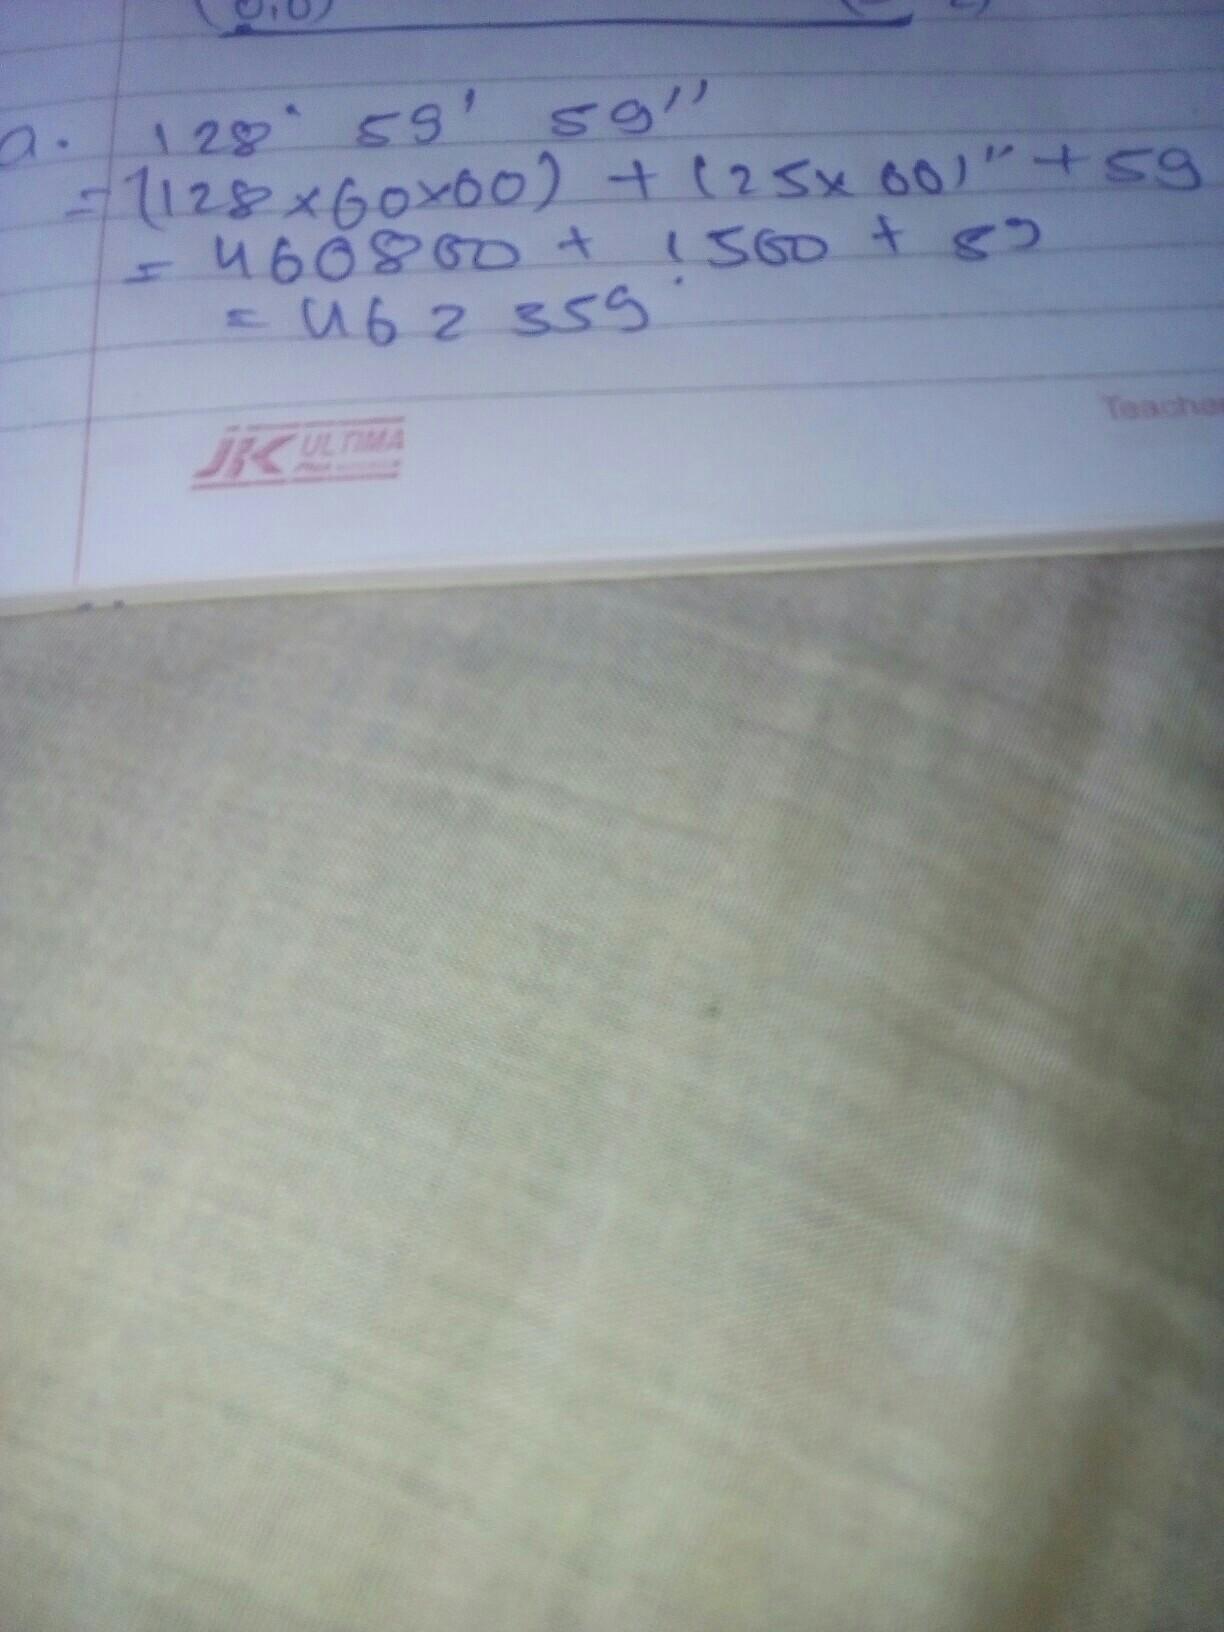 (0,0)
a. 128° 59' 59''
= (128×60×60) + (25×60)'' + 59
= 460800 + 1500 + 59
= 462359
JK ULTIMA
Teache